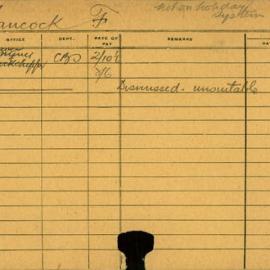 ancock F
not on holiday
System
OFFICE DEPT. RATE OF PAY REMARKS
CBD 2/10½
3/6
Dismissed. unsuitable